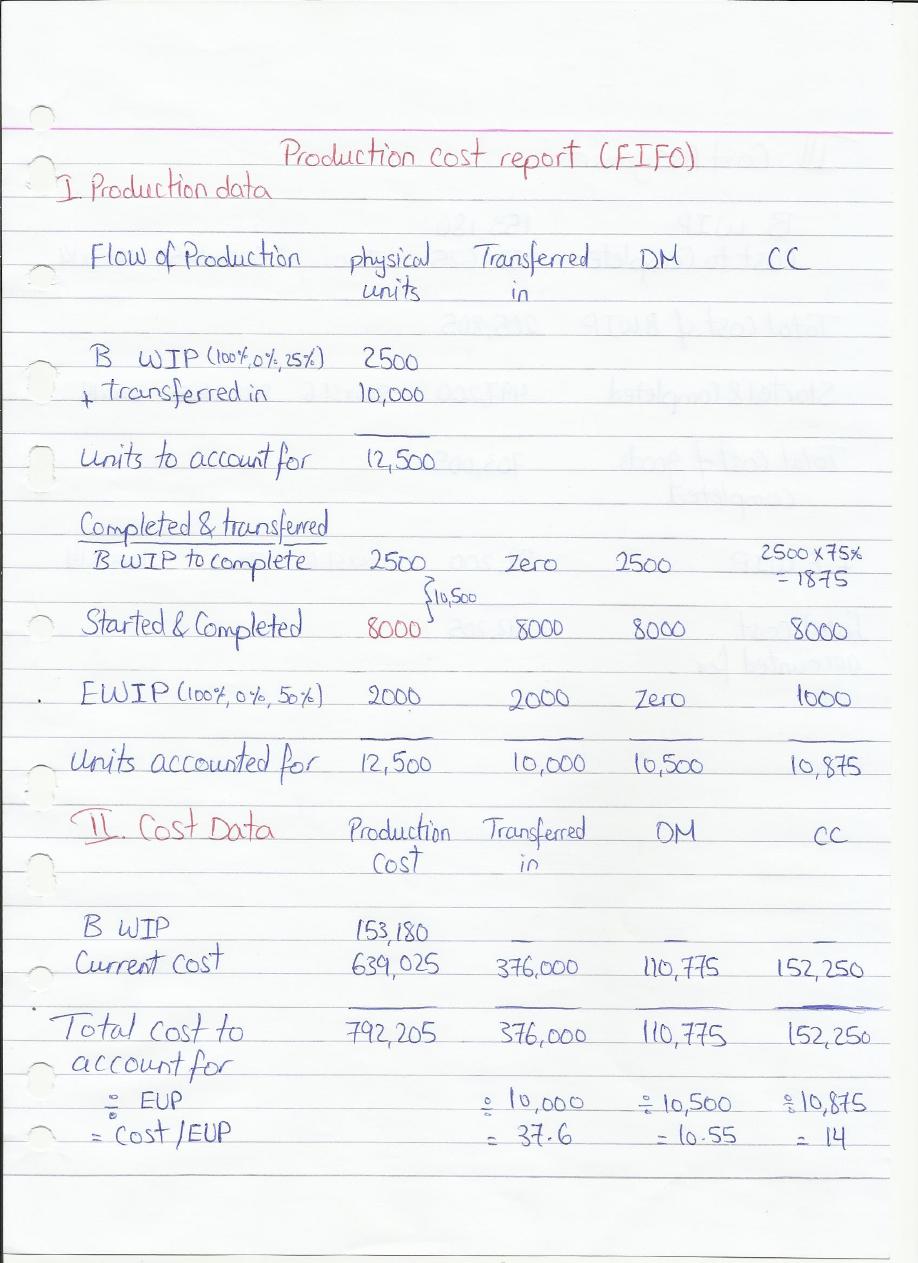 Production cost report (FIFO)
I. Production data
Flow of Production physical units Transferred in DM CC
B WIP (100%, 0%, 25%) 2500
+ transferred in 10,000
Units to account for 12,500
Completed & transferred
B WIP to complete 2500 Zero 2500 2500 x 75% = 1875
}10,500
Started & Completed 8000 8000 8000 8000
EWIP (100%, 0%, 50%) 2000 2000 Zero 1000
Units accounted for 12,500 10,000 10,500 10,875
II. Cost Data Production Cost Transferred in DM CC
B WIP 153,180 — — —
Current cost 639,025 376,000 110,775 152,250
Total cost to account for 792,205 376,000 110,775 152,250
÷ EUP ÷ 10,000 ÷ 10,500 ÷ 10,875
= Cost/EUP = 37.6 = 10.55 = 14